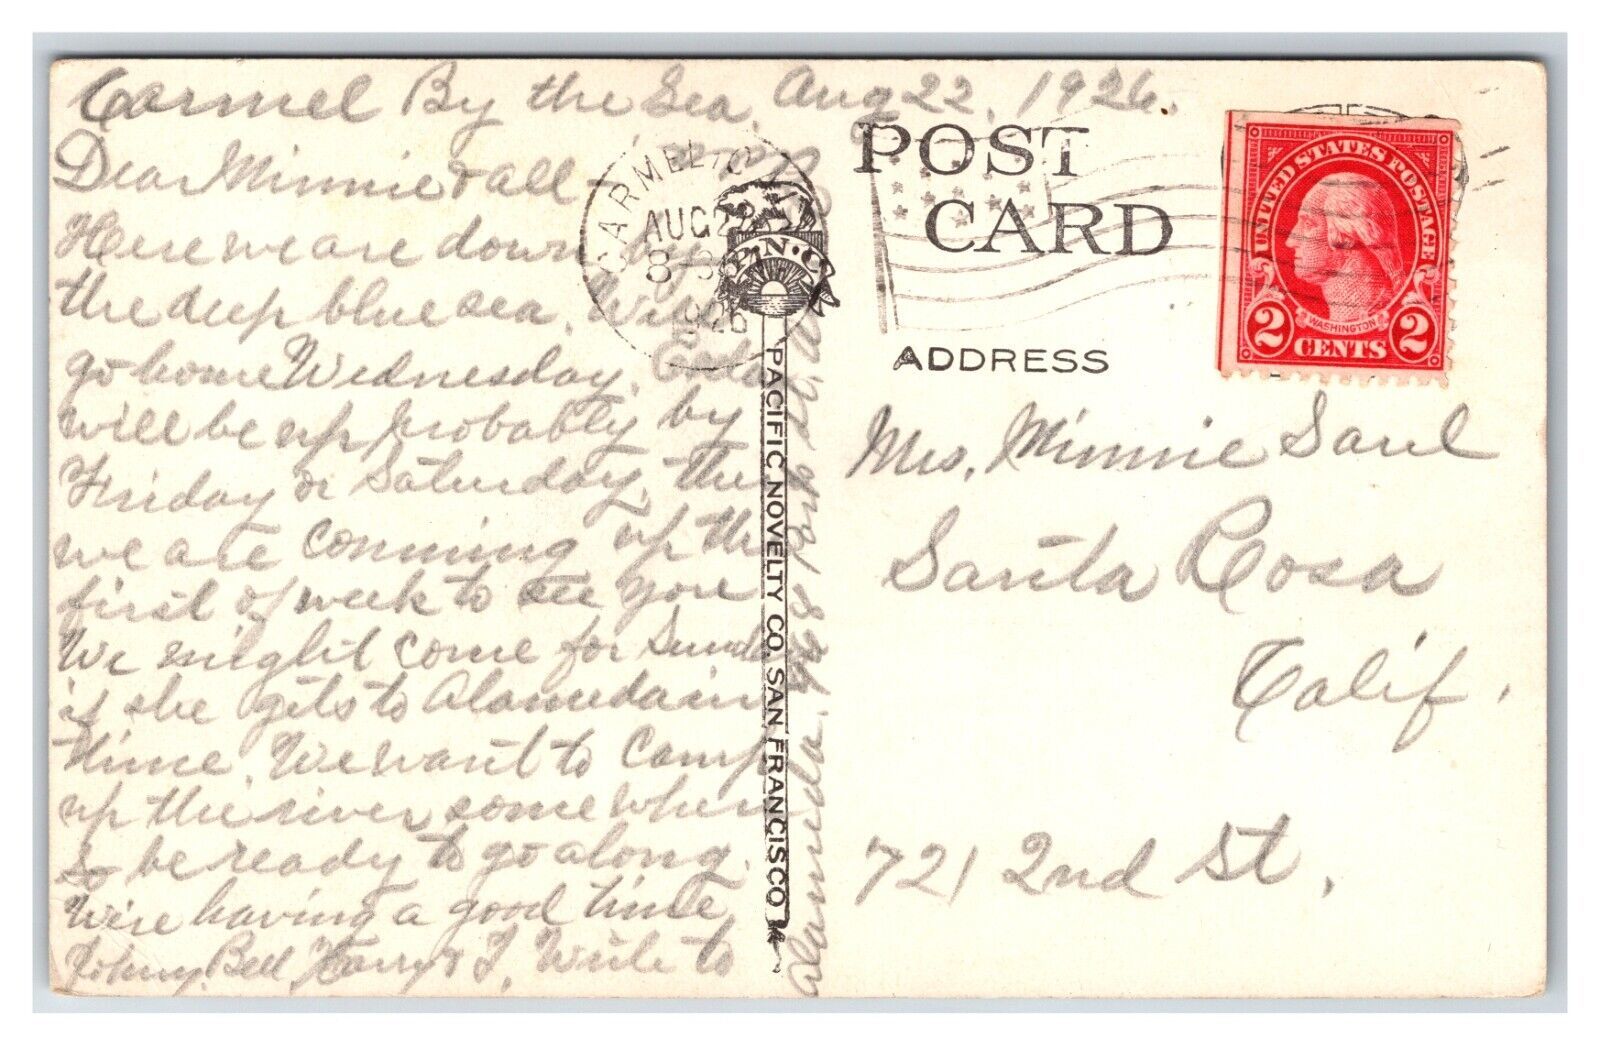 Carmel By the Sea, Aug 22, 1926.
Dear Minnie & all -
Here we are down by
the deep blue sea. Will
go home Wednesday.
will be up probably by
Friday or Saturday. The
we are comming up the
first of week to see you
We might come for Sunda
if she gets to Alameda in
time. We want to camp
up the river some where
so be ready to go along.
Wire having a good time
Johny, Bell, Harry & I. Write to
Alameda.
CARMEL, C
AUG 22
8
1926
P.N.C
PACIFIC NOVELTY CO. SAN FRANCISCO
POST
CARD
ADDRESS
UNITED STATES POSTAGE
WASHINGTON
2 CENTS 2
Mrs. Minnie Saul
Santa Rosa
Calif.
721 2nd St.